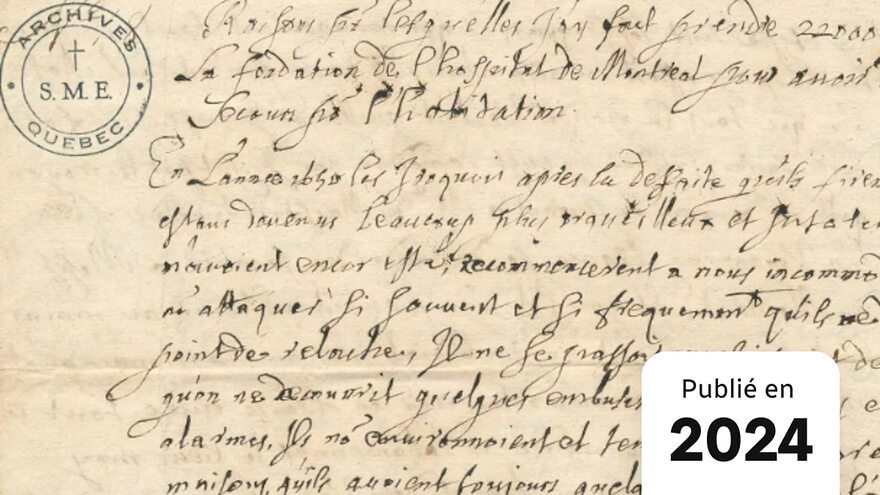 ARCHIVES
S.M.E.
QUEBEC
Raisons pr lesquelles Jay fait prendre 22000
La fondation de l'hospital de Montreal pour avoir
secours pr l'habitation.
En Lannee 1650 les Iroquois apres la deffaite qu'ils firent
estans devenus beaucoup plus orgueilleux et Insolens
n'avoient encor esté, recommencerent a nous incommo
nos attaquer si souvent et si frequemmt qu'ils ne
point de relache, Il ne se passoit de
qu'on ne decouvrit quelques embus
alarmes, Ils nos environnoient et ten
maisons, qu'ils avoient toujours quelq
Publié en
2024